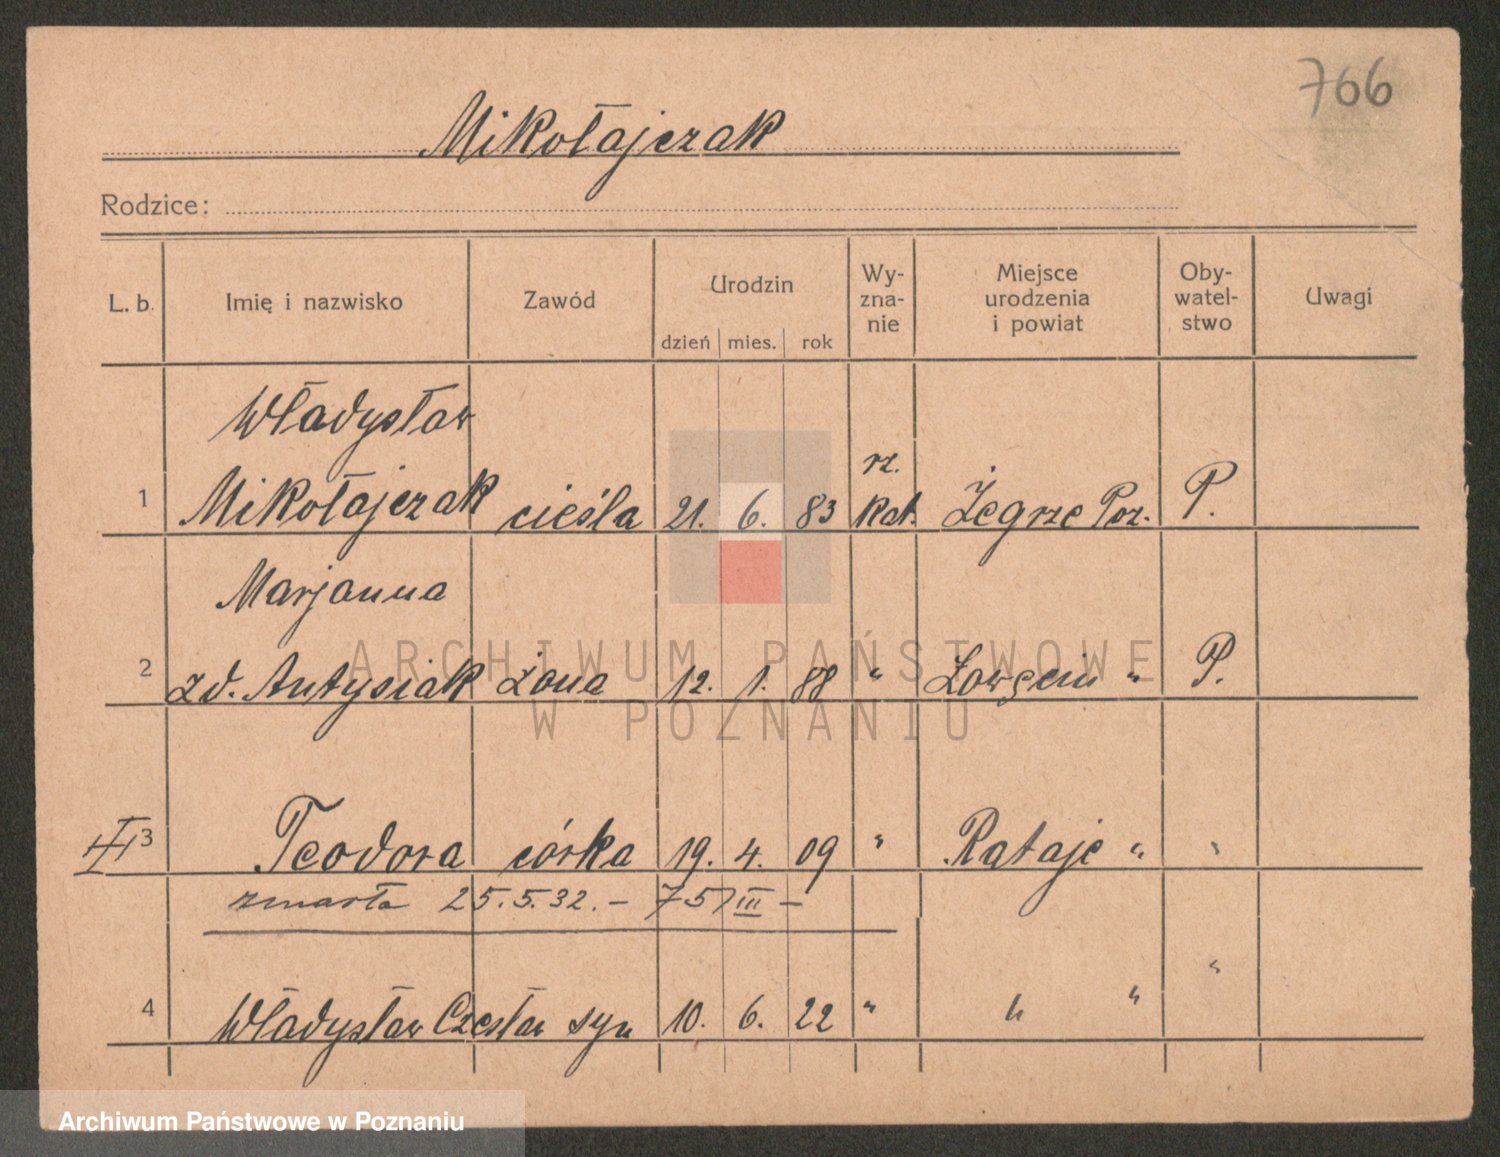 766
Mikołajczak
Rodzice:
L. b. Imię i nazwisko Zawód Urodzin dzień mies. rok Wy-zna-nie Miejsce urodzenia i powiat Oby-watel-stwo Uwagi
Władysław
1 Mikołajczak cieśla 21. 6. 83 rz. kat. Żegrze Poz. P.
Marjanna
2 zd. Antysiak żona 12. 1. 88 " Łowęcin " P.
ARCHIWUM PAŃSTWOWE
W POZNANIU
3 Teodora córka 19. 4. 09 " Rataje " "
zmarła 25.5.32. – 757 III –
4 Władysław Czesław syn 10. 6. 22 " " " "
Archiwum Państwowe w Poznaniu